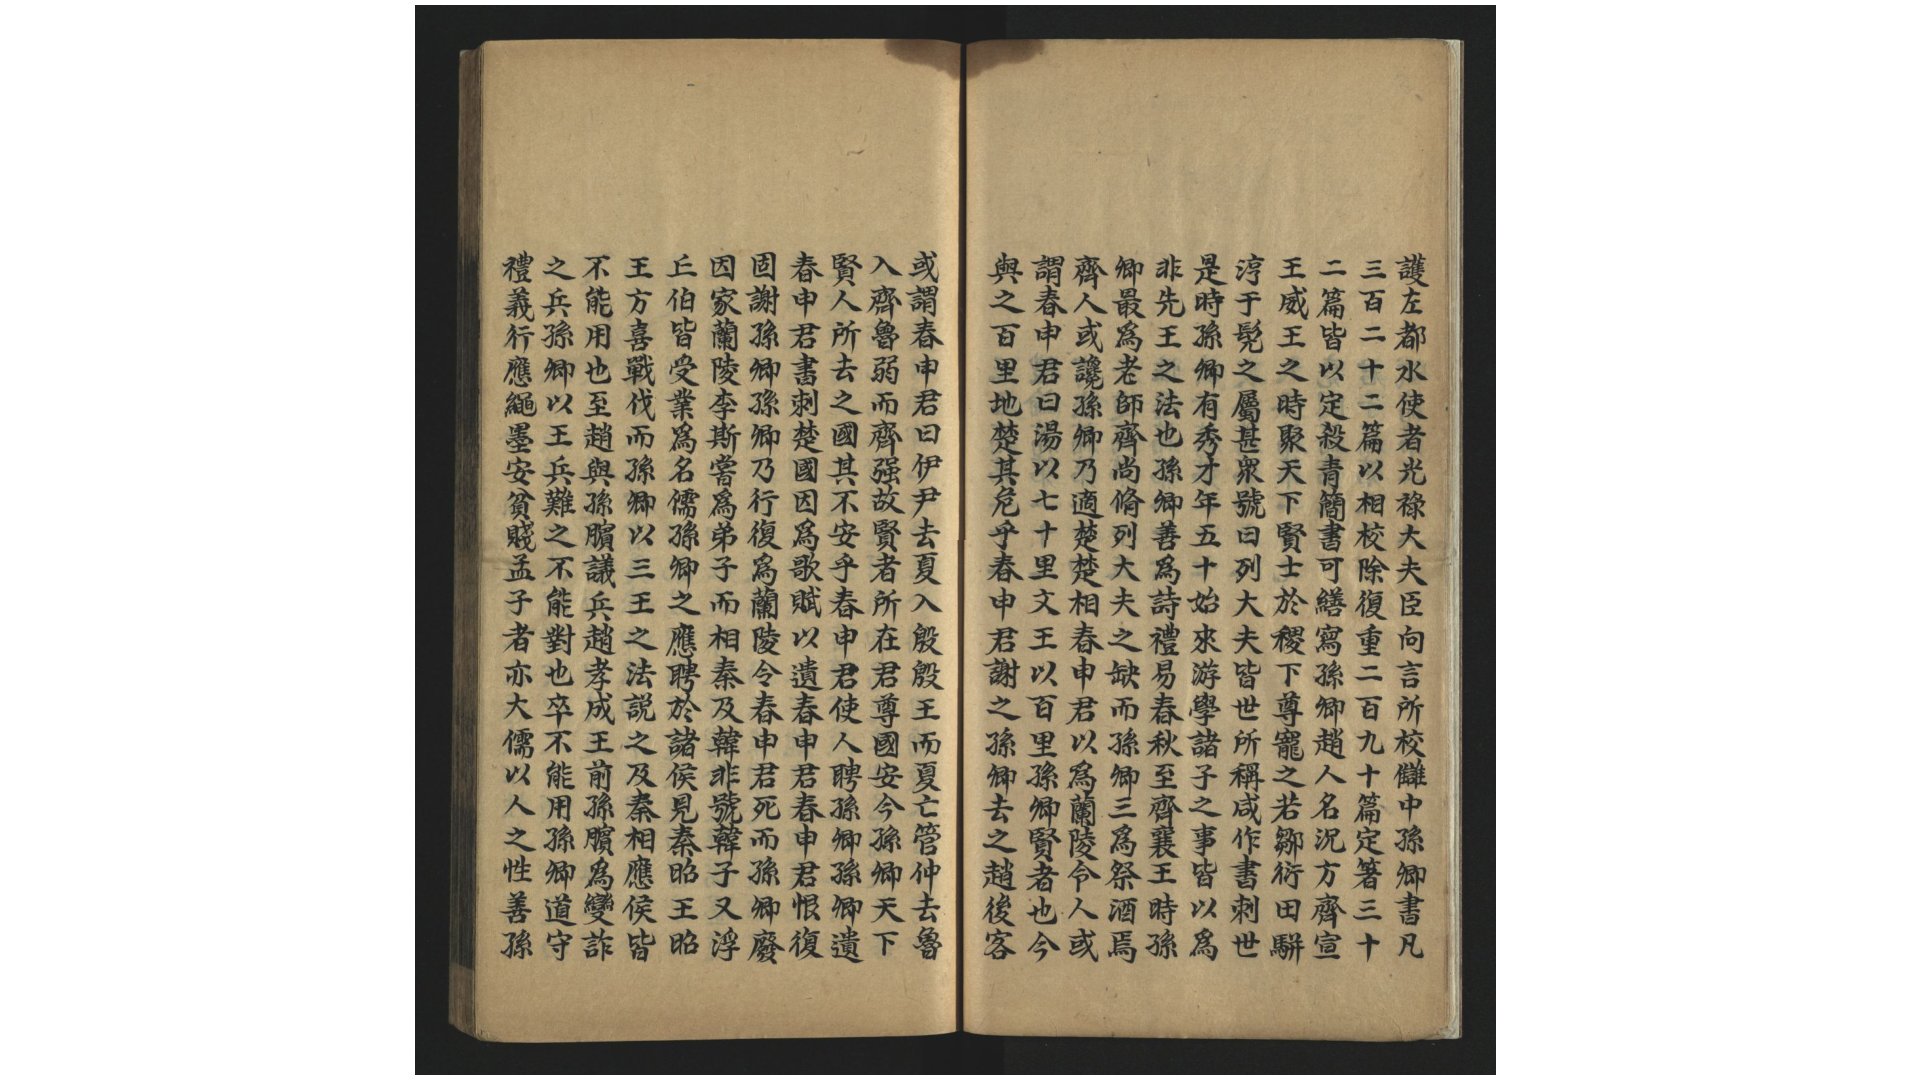 護左都水使者光祿大夫臣向言所校讎中孫卿書凡
三百二十二篇以相校除復重二百九十篇定著三十
二篇皆以定殺青簡書可繕寫孫卿趙人名況方齊宣
王威王之時聚天下賢士於稷下尊寵之若鄒衍田駢
淳于髡之屬甚衆號曰列大夫皆世所稱咸作書刺世
是時孫卿有秀才年五十始來游學諸子之事皆以爲
非先王之法也孫卿善爲詩禮易春秋至齊襄王時孫
卿最爲老師齊尚脩列大夫之缺而孫卿三爲祭酒焉
齊人或讒孫卿乃適楚楚相春申君以爲蘭陵令人或
謂春申君曰湯以七十里文王以百里孫卿賢者也今
與之百里地楚其危乎春申君謝之孫卿去之趙後客
或謂春申君曰伊尹去夏入殷殷王而夏亡管仲去魯
入齊魯弱而齊强故賢者所在君尊國安今孫卿天下
賢人所去之國其不安乎春申君使人聘孫卿孫卿遺
春申君書刺楚國因爲歌賦以遺春申君春申君恨復
固謝孫卿孫卿乃行復爲蘭陵令春申君死而孫卿廢
因家蘭陵李斯嘗爲弟子而相秦及韓非號韓子又浮
丘伯皆受業爲名儒孫卿之應聘於諸侯見秦昭王昭
王方喜戰伐而孫卿以三王之法説之及秦相應侯皆
不能用也至趙與孫臏議兵趙孝成王前孫臏爲變詐
之兵孫卿以王兵難之不能對也卒不能用孫卿道守
禮義行應繩墨安貧賤孟子者亦大儒以人之性善孫